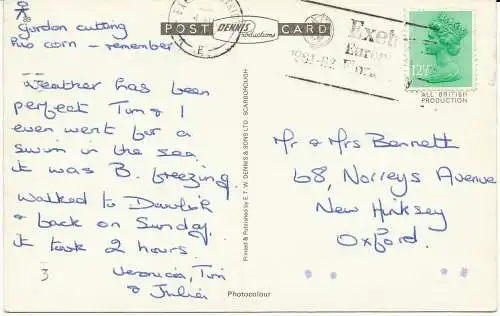 Gordon cutting
his corn – remember
POST DENNIS Productions CARD
Exet
Europe
1981-82
12½P
ALL BRITISH
PRODUCTION
Weather has been
perfect Tim & I
even went for a
swim in the sea
it was B. freezing.
Walked to Dawlish
& back on Sunday,
it took 2 hours.
Veronica, Tim
& Julia
3
Printed & Published by E.T.W. DENNIS & SONS LTD. SCARBOROUGH
Mr & Mrs Bennett
68, Norreys Avenue
New Hinksey
Oxford.
Photocolour